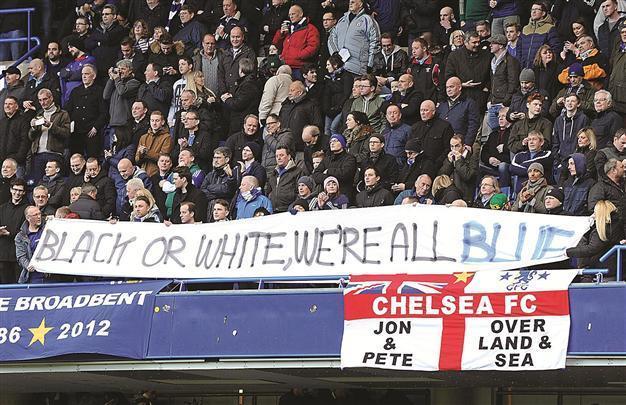 BLACK OR WHITE, WE'RE ALL BLUE
E BROADBENT
86 2012
CHELSEA FC
JON & PETE
OVER LAND & SEA